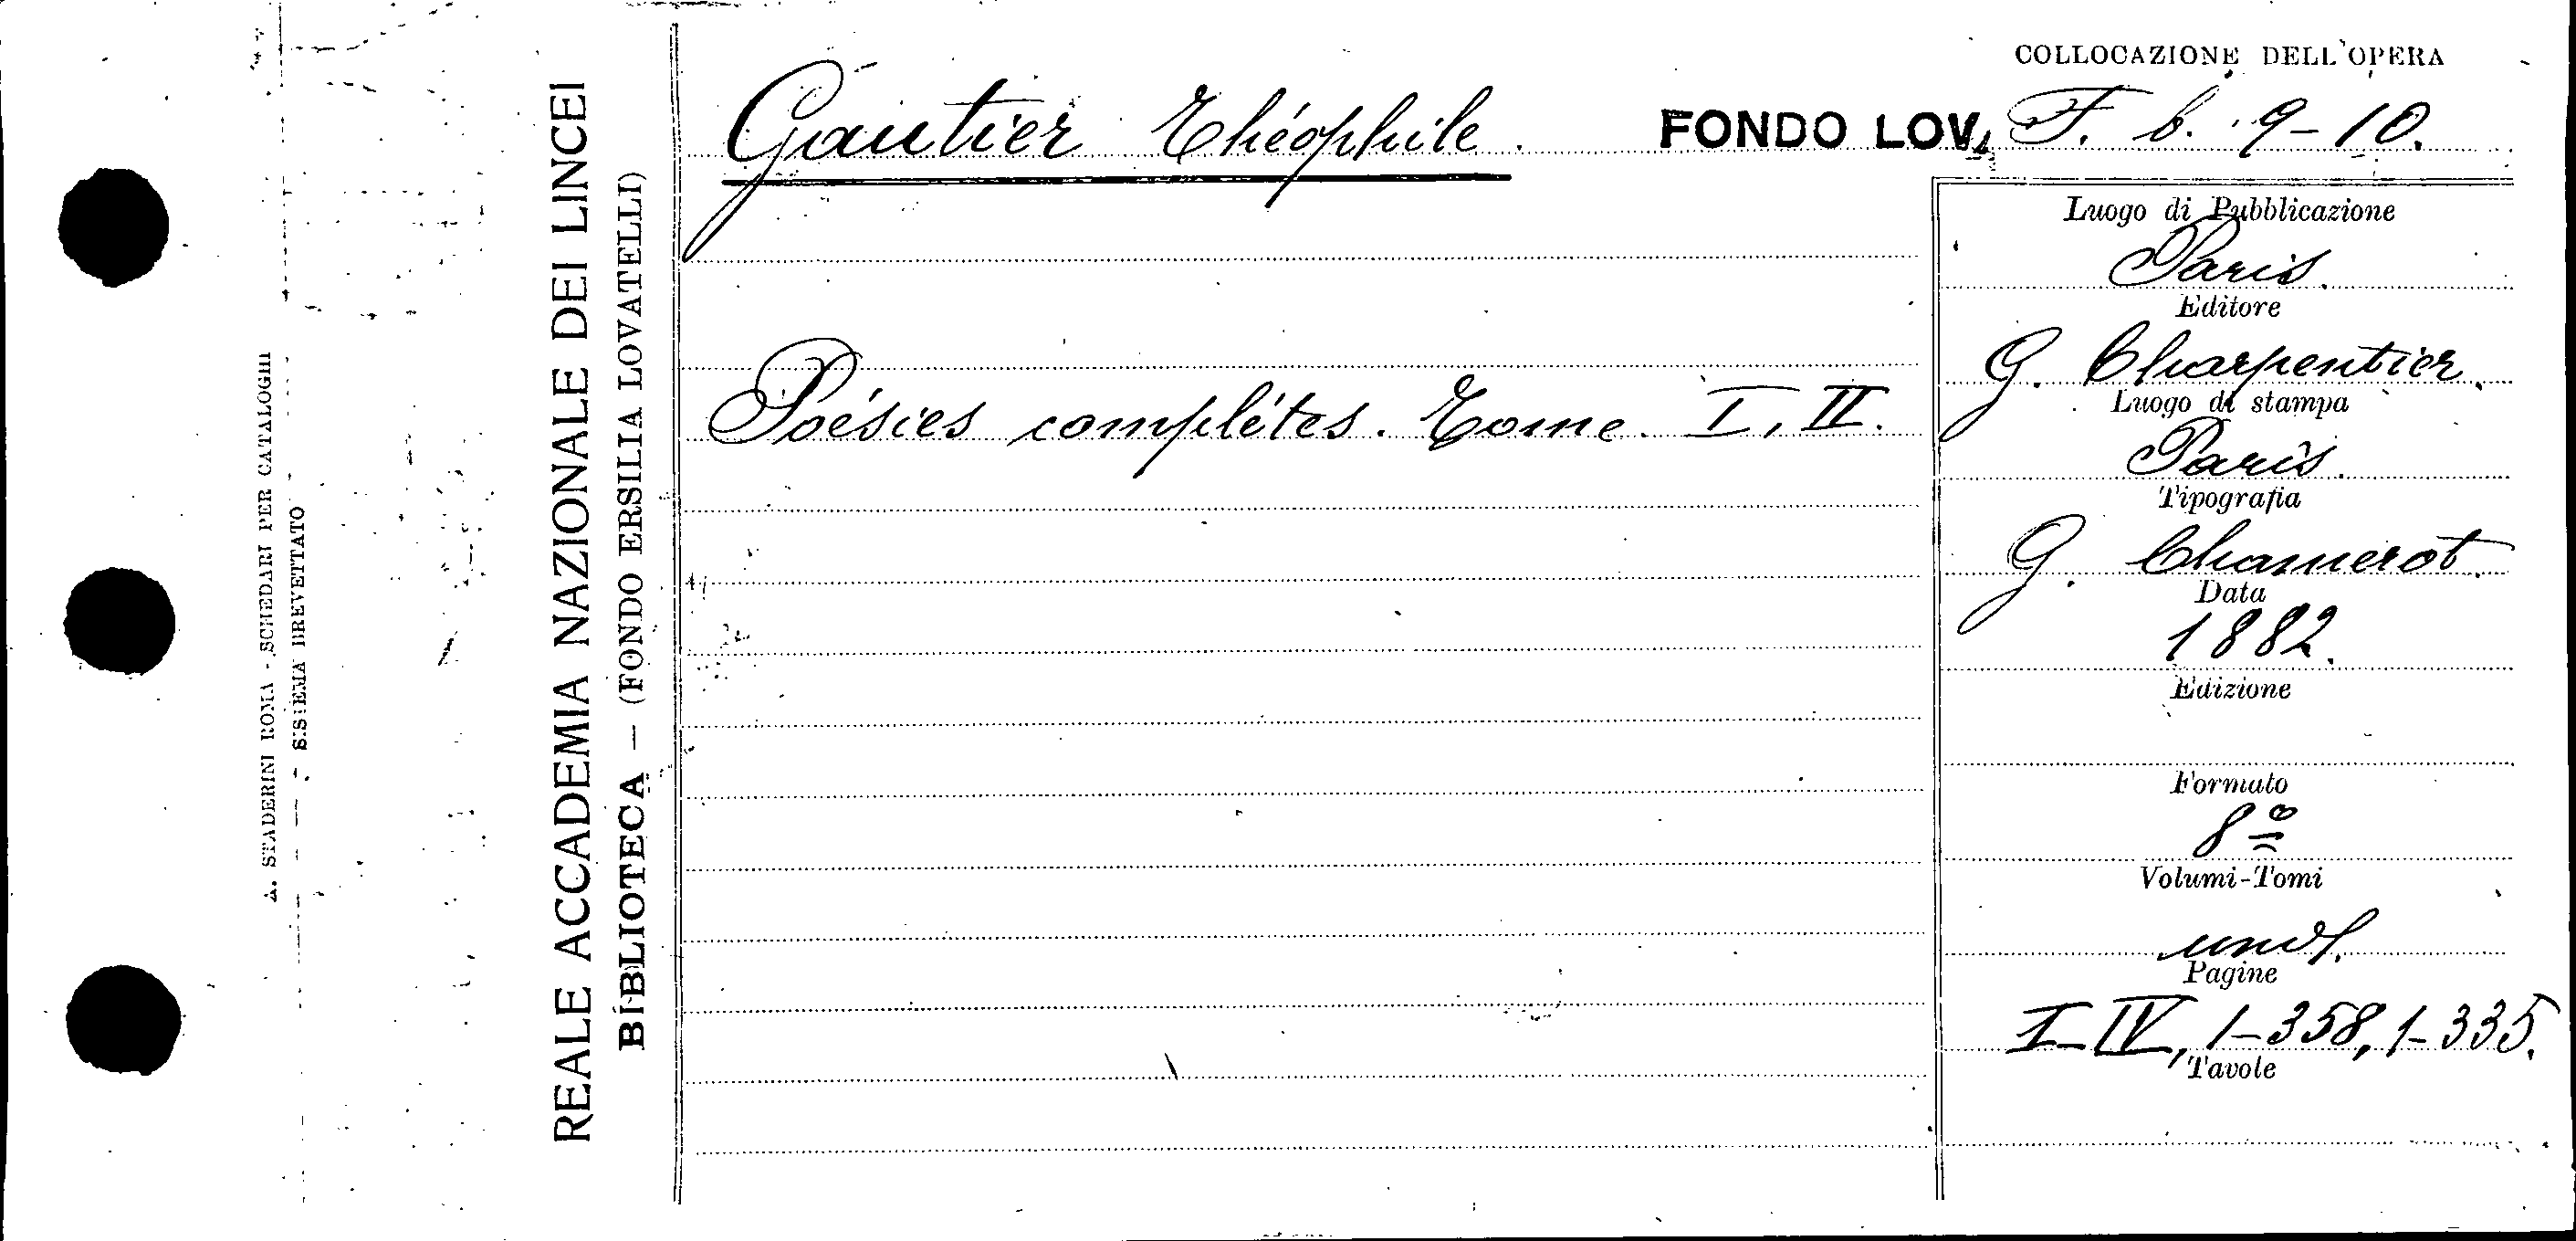 A. STADERINI ROMA - SCHEDARI PER CATALOGHI
SISTEMA BREVETTATO
REALE ACCADEMIA NAZIONALE DEI LINCEI
BIBLIOTECA — (FONDO ERSILIA LOVATELLI)
COLLOCAZIONE DELL'OPERA
Gautier Théophile. FONDO LOV. F. b. 9-10.
Poésies complètes. Tome I, II.
Luogo di Pubblicazione
Paris.
Editore
G. Charpentier.
Luogo di stampa
Paris.
Tipografia
G. Chamerot.
Data
1882.
Edizione
Formato
8º
Volumi-Tomi
Pagine
I-IV, 1-358, 1-335.
Tavole